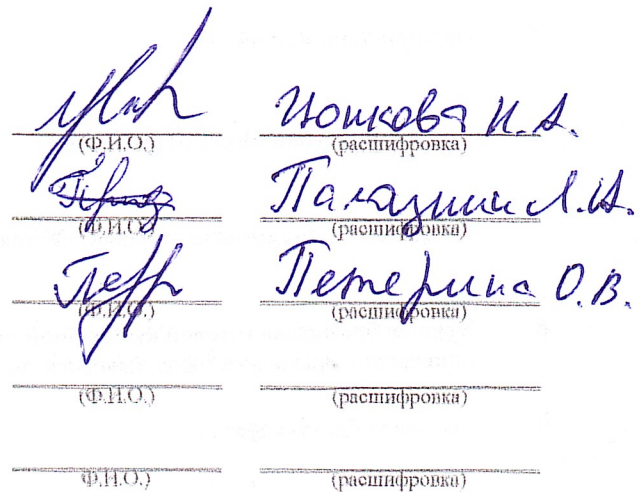 Цопкова И.А.
(Ф.И.О.) (расшифровка)
Л.И.
(Ф.И.О.) (расшифровка)
Петерина О.В.
(Ф.И.О.) (расшифровка)
(Ф.И.О.) (расшифровка)
(Ф.И.О.) (расшифровка)